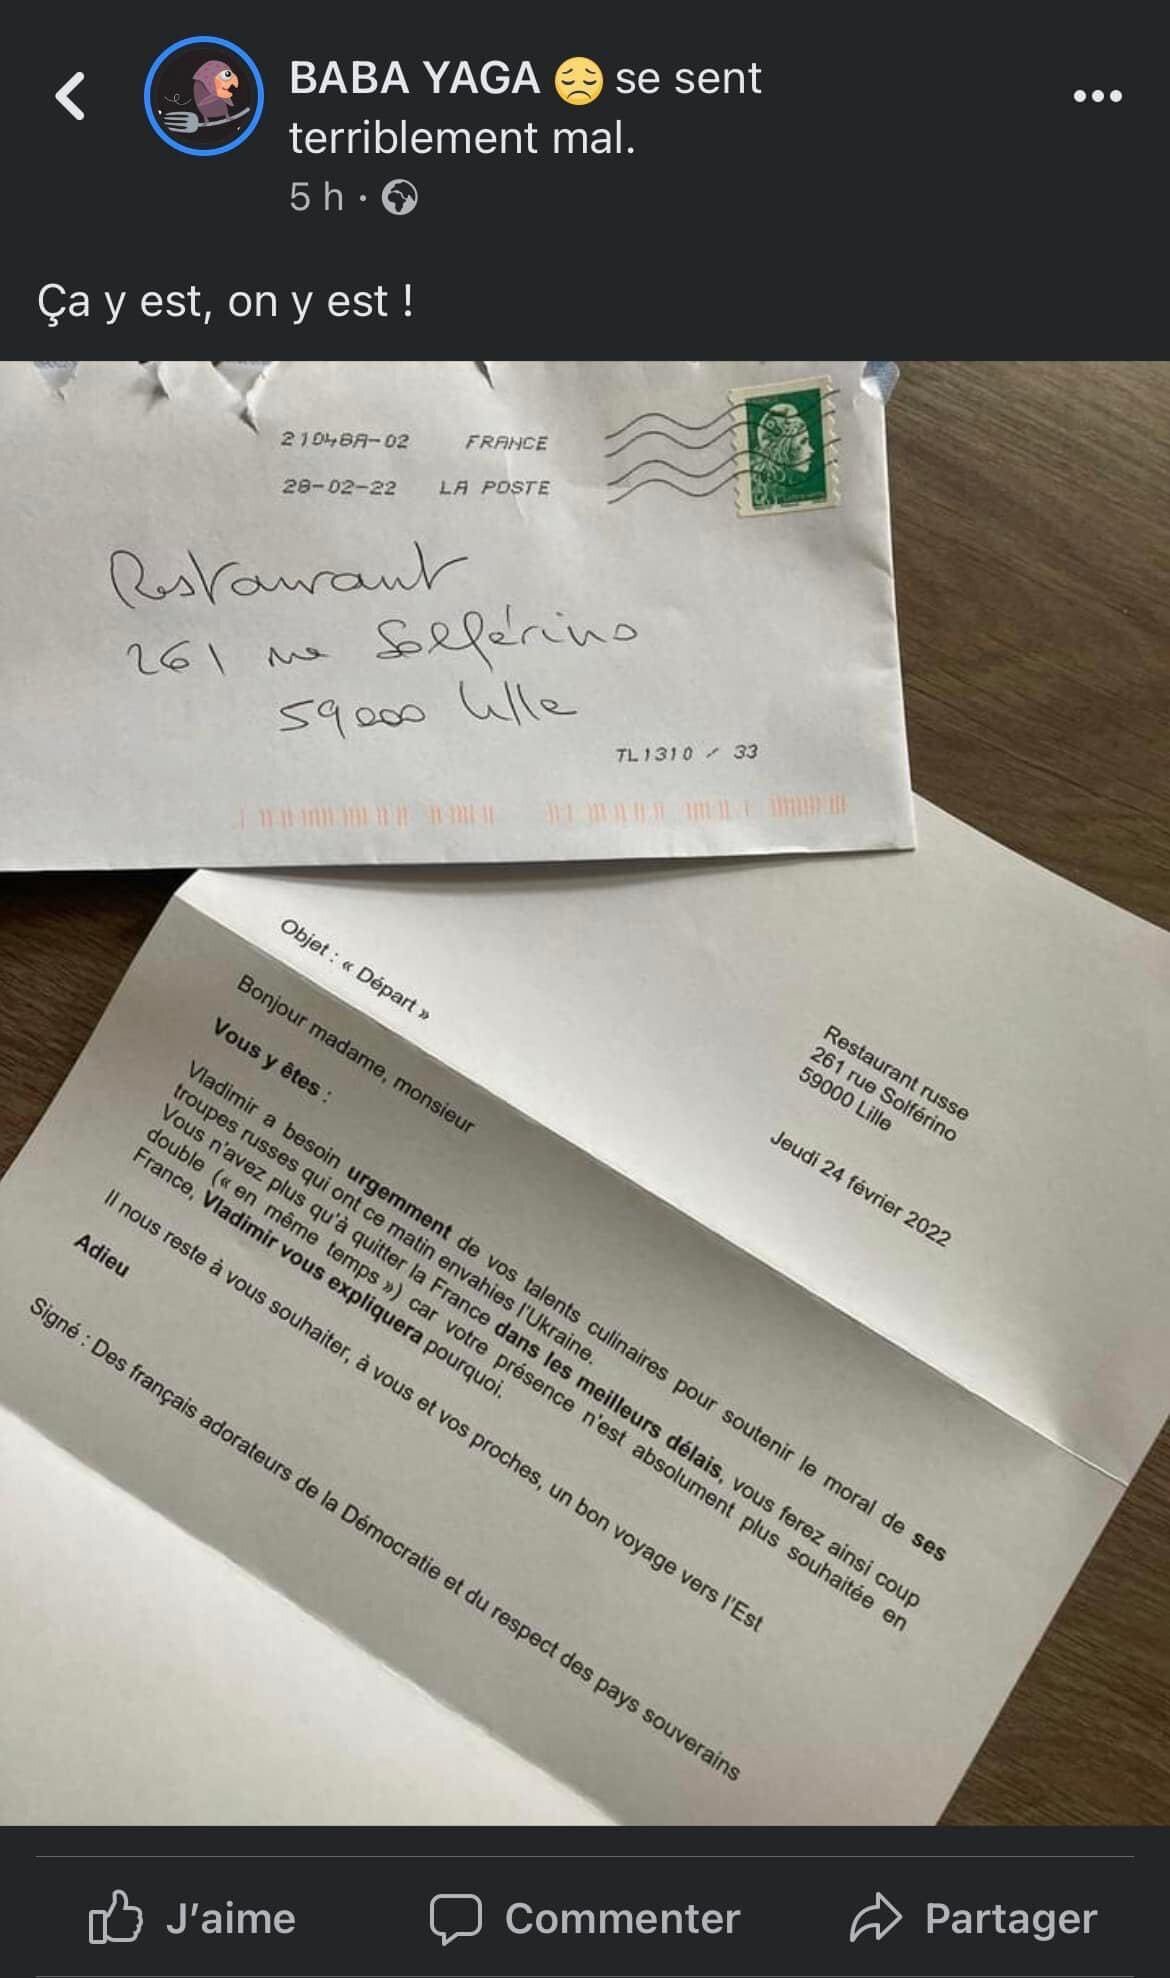 BABA YAGA 😞 se sent
terriblement mal.
5 h ·
Ça y est, on y est !
21048A-02 FRANCE
28-02-22 LA POSTE
Restaurant
261 rue Solférino
59000 Lille
TL1310 / 33
Restaurant russe
261 rue Solférino
59000 Lille
Jeudi 24 février 2022
Objet : « Départ »
Bonjour madame, monsieur
Vous y êtes :
Vladimir a besoin urgemment de vos talents culinaires pour soutenir le moral de ses
troupes russes qui ont ce matin envahies l'Ukraine.
Vous n'avez plus qu'à quitter la France dans les meilleurs délais, vous ferez ainsi coup
double (« en même temps ») car votre présence n'est absolument plus souhaitée en
France, Vladimir vous expliquera pourquoi.
Il nous reste à vous souhaiter, à vous et vos proches, un bon voyage vers l'Est
Adieu
Signé : Des français adorateurs de la Démocratie et du respect des pays souverains
J'aime
Commenter
Partager